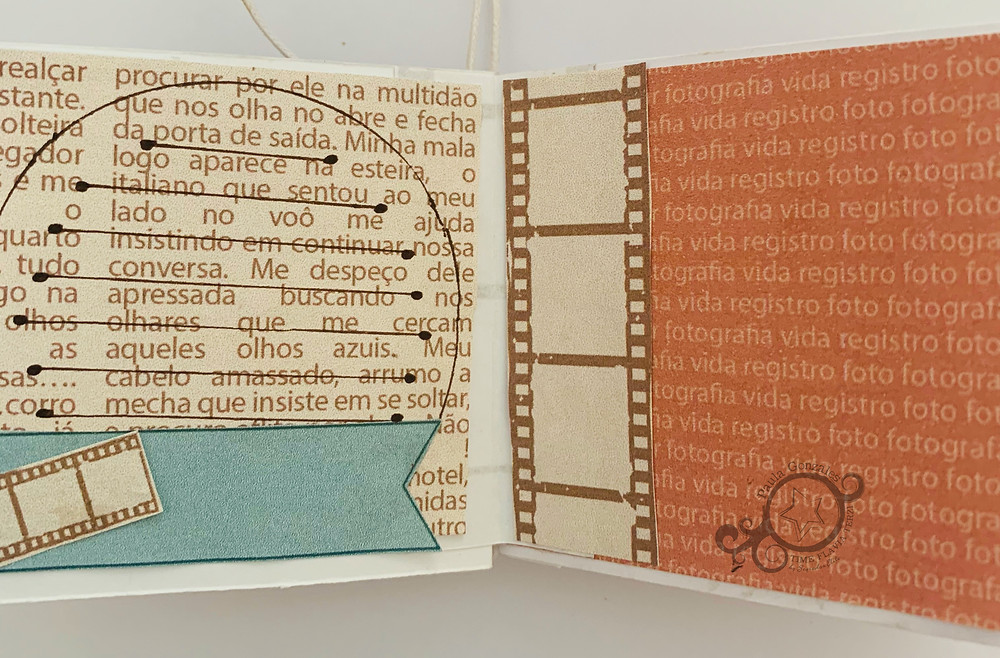 realçar
stante.
olteira
egador
e me
o
quarto
tudo
go na
olhos
as
sas....
corro
já
procurar por ele na multidão
que nos olha no abre e fecha
da porta de saída. Minha mala
logo aparece na esteira, o
italiano que sentou ao meu
lado no voô me ajuda
insistindo em continuar nossa
conversa. Me despeço dele
apressada buscando nos
olhares que me cercam
aqueles olhos azuis. Meu
cabelo amassado, arrumo a
mecha que insiste em se soltar,
Não
!
hotel,
nidas
utro
fotografia vida registro foto
fia vida registro foto fotogra
tografia vida registro foto
fotografia vida registro foto
fia vida registro foto fotogra
tografia vida registro foto
fotografia vida registro foto
fia vida registro foto fotogra
tografia vida registro foto
fotografia vida registro foto
fia vida registro foto fotogra
tografia vida registro foto
fotografia vida registro foto
vida registro foto fotogra
registro foto
foto fotografi
fotografia vida registro foto
Paula Gonzales